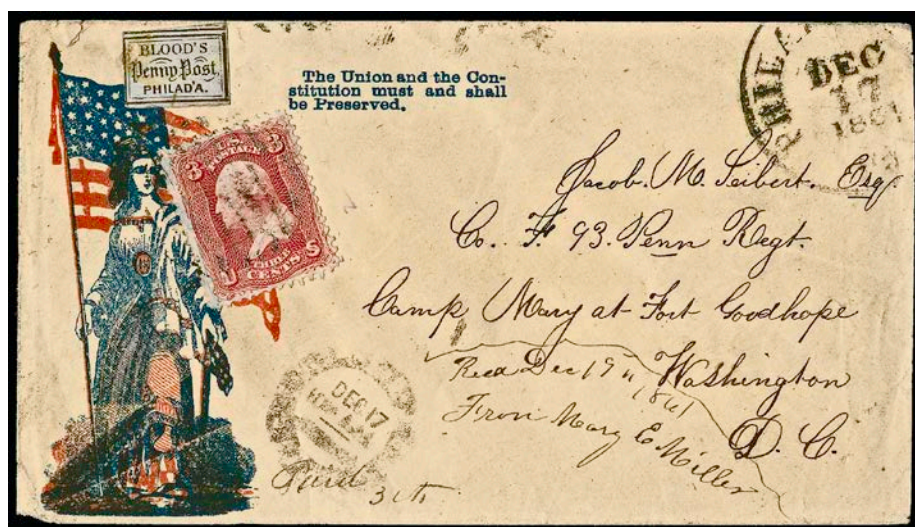 BLOOD'S
Penny Post,
PHILAD'A.
The Union and the Con-
stitution must and shall
be Preserved.
DEC
17
1861
U.S.
POSTAGE
3 3
THREE
U CENTS S
Jacob. M. Seibert. Esq.
Co. F. 93. Penn Regt.
Camp Mary at Fort Goodhope
Washington
D. C.
Recd Dec 19th 1861
From Mary E Miller
DEC 17
Paid
3 cts